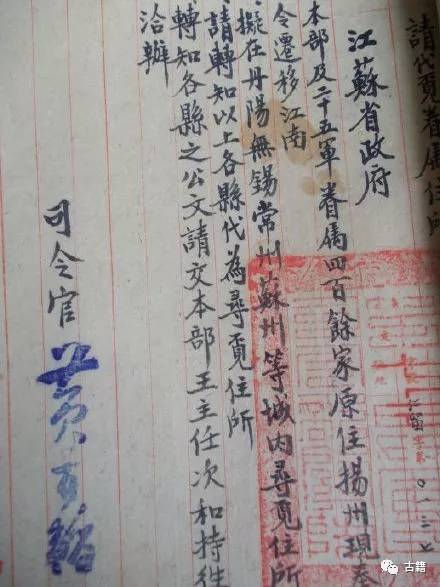 請代覓眷屬住所
江蘇省政府
本部及二十五軍眷屬四百餘家原住揚州現奉
令遷移江南
擬在丹陽無錫常州蘇州等城內尋覓住所
請轉知以上各縣代為尋覓住所
轉知各縣之公文請交本部王主任次和持往
洽辦
司令官 黃百韜
古籍